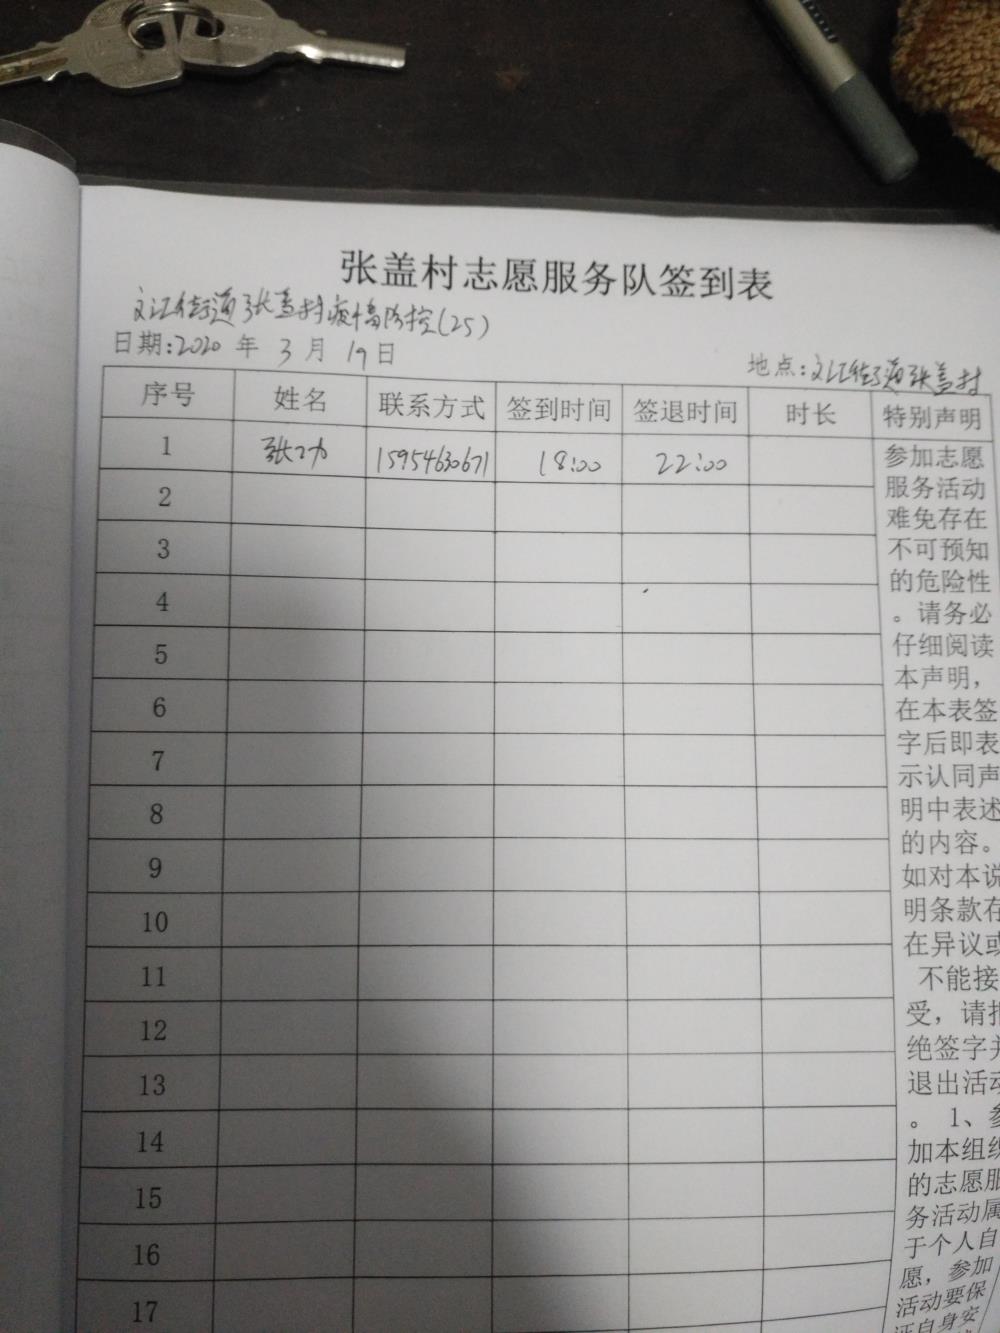 张盖村志愿服务队签到表
文汇街道张盖村疫情防控(25)
日期:2020 年 3 月 19日
地点:文汇街道张盖村
序号 姓名 联系方式 签到时间 签退时间 时长 特别声明
1 张功 15954630671 18:00 22:00
2
3
4
5
6
7
8
9
10
11
12
13
14
15
16
17
参加志愿
服务活动
难免存在
不可预知
的危险性
。请务必
仔细阅读
本声明，
在本表签
字后即表
示认同声
明中表述
的内容。
如对本说
明条款存
在异议或
不能接
受，请拒
绝签字并
退出活动
。 1、参
加本组织
的志愿服
务活动属
于个人自
愿，参加
活动要保
证自身安